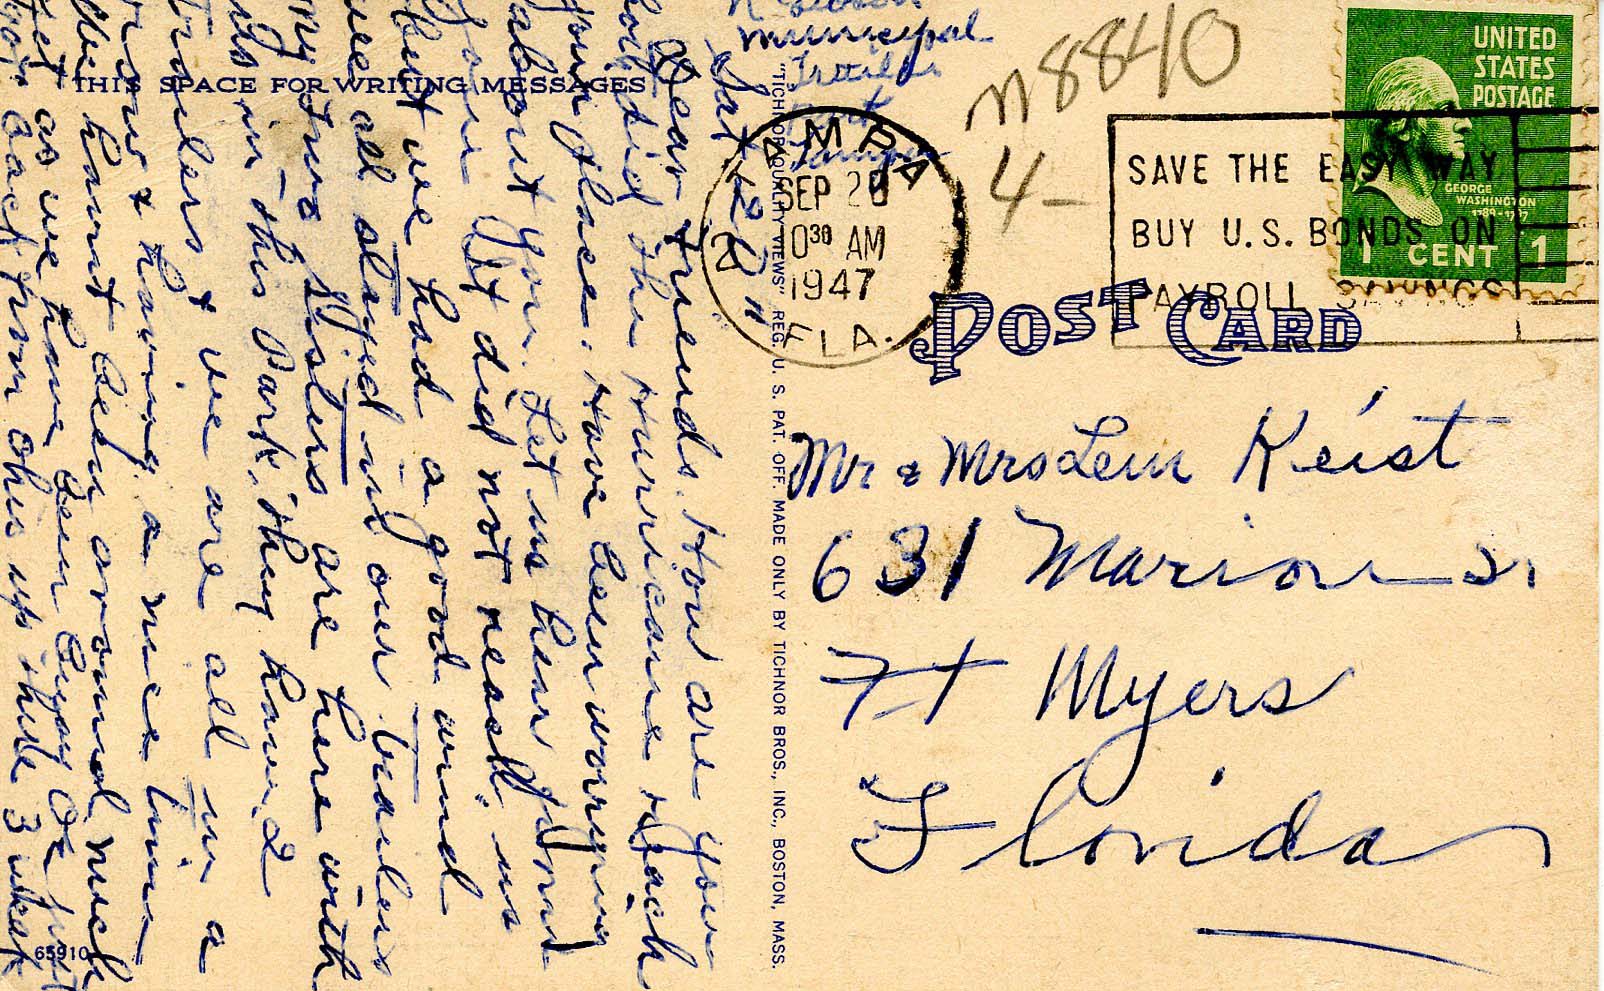 THIS SPACE FOR WRITING MESSAGES
Municipal
Trailer
Park
Tampa
Sat 12 N
Dear Friends. How are you
how did the Hurricane reach
your place. Have been worrying
about you. Let us hear from
you. It did not reach us
but we had a good wind
we all stayed in our trailers
My Two Sisters are here with
us in this Park, they have 2
trailers & we are all in a
row & having a nice time
We havent been around much
yet as we have been busy
got back from Ohio up there 3 weeks
65910
"TICHNOR QUALITY VIEWS" REG. U. S. PAT. OFF. MADE ONLY BY TICHNOR BROS., INC., BOSTON, MASS.
TAMPA
SEP 20
10 30 AM
1947
FLA.
M8840
4-
SAVE THE EASY WAY
BUY U.S. BONDS ON
PAYROLL SAVINGS
UNITED
STATES
POSTAGE
GEORGE
WASHINGTON
1789-1797
1 CENT 1
POST CARD
Mr & Mrs Lem Keist
631 Marion St
Ft Myers
Florida